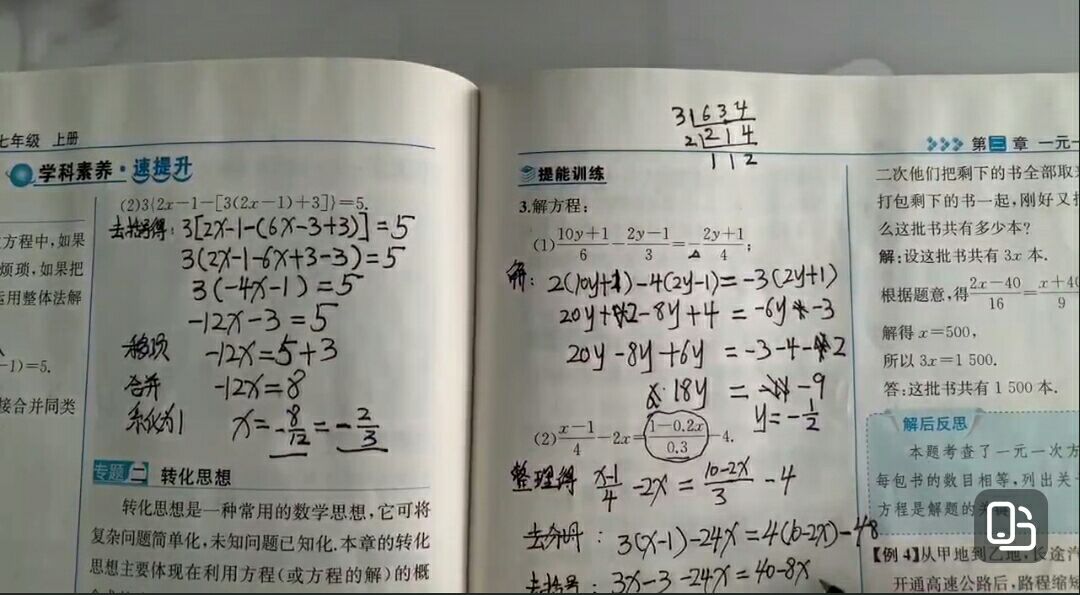 七年级 上册
学科素养·速提升
方程中,如果
烦琐,如果把
运用整体法解
-1)=5.
接合并同类
(2)3{2x-1-[3(2x-1)+3]}=5.
去括号得: 3[2x-1-(6x-3+3)]=5
3(2x-1-6x+3-3)=5
3(-4x-1)=5
-12x-3=5
移项 -12x=5+3
合并 -12x=8
系化为1 x=-8/12=-2/3
专题二 转化思想
转化思想是一种常用的数学思想,它可将
复杂问题简单化,未知问题已知化.本章的转化
思想主要体现在利用方程(或方程的解)的概
3 634
2 214
112
第三章 一元一
提能训练
3.解方程:
(1)(10y+1)/6-(2y-1)/3=-(2y+1)/4;
解: 2(10y+1)-4(2y-1)=-3(2y+1)
20y+2-8y+4=-6y-3
20y-8y+6y=-3-4-2
18y=-9
y=-1/2
(2)(x-1)/4-2x=(1-0.2x)/0.3-4.
整理得 (x-1)/4-2x=(10-2x)/3-4
去分母: 3(x-1)-24x=4(10-2x)-48
去括号: 3x-3-24x=40-8x
二次他们把剩下的书全部取
打包剩下的书一起,刚好又打
么这批书共有多少本?
解:设这批书共有 3x 本.
根据题意,得(2x-40)/16=(x+40)/9
解得 x=500,
所以 3x=1 500.
答:这批书共有 1 500 本.
解后反思
本题考查了一元一次方
每包书的数目相等,列出关
方程是解题的关
【例 4】从甲地到乙地,长途汽
开通高速公路后,路程缩短